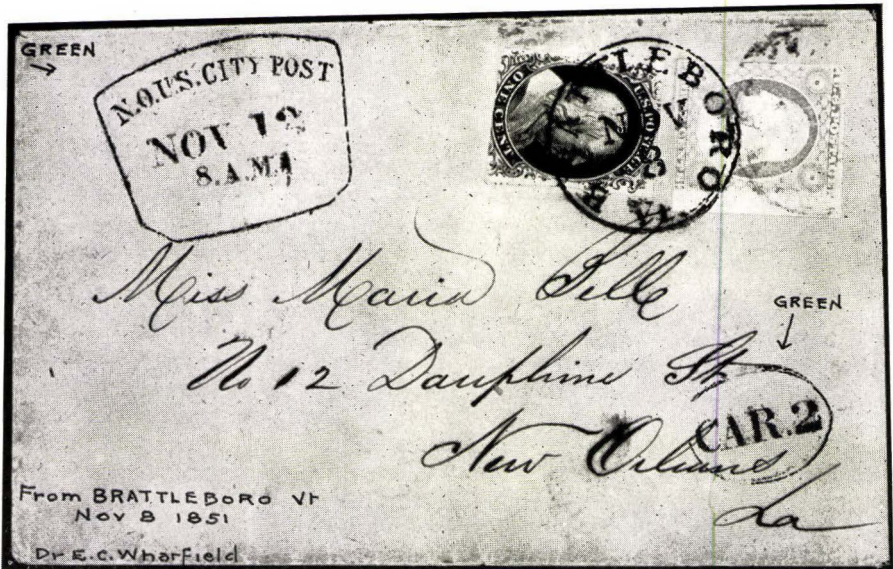 GREEN
N.O.U.S. CITY POST
NOV 12
8.A.M.
U.S. POSTAGE
ONE CENT
LEBORO
8
Miss Maria
No 12 Dauphine St
New Orleans
La
GREEN
CAR.2
From BRATTLEBORO Vt
Nov 8 1851
Dr E.C. Wharfield